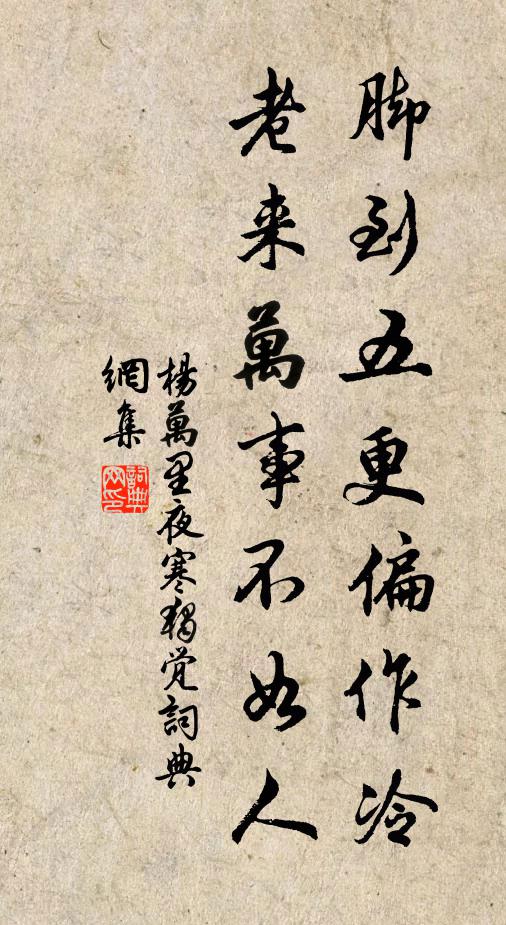 脚到五更偏作冷
老来萬事不如人
楊萬里夜寒獨覚詞典
網集
詞典網印